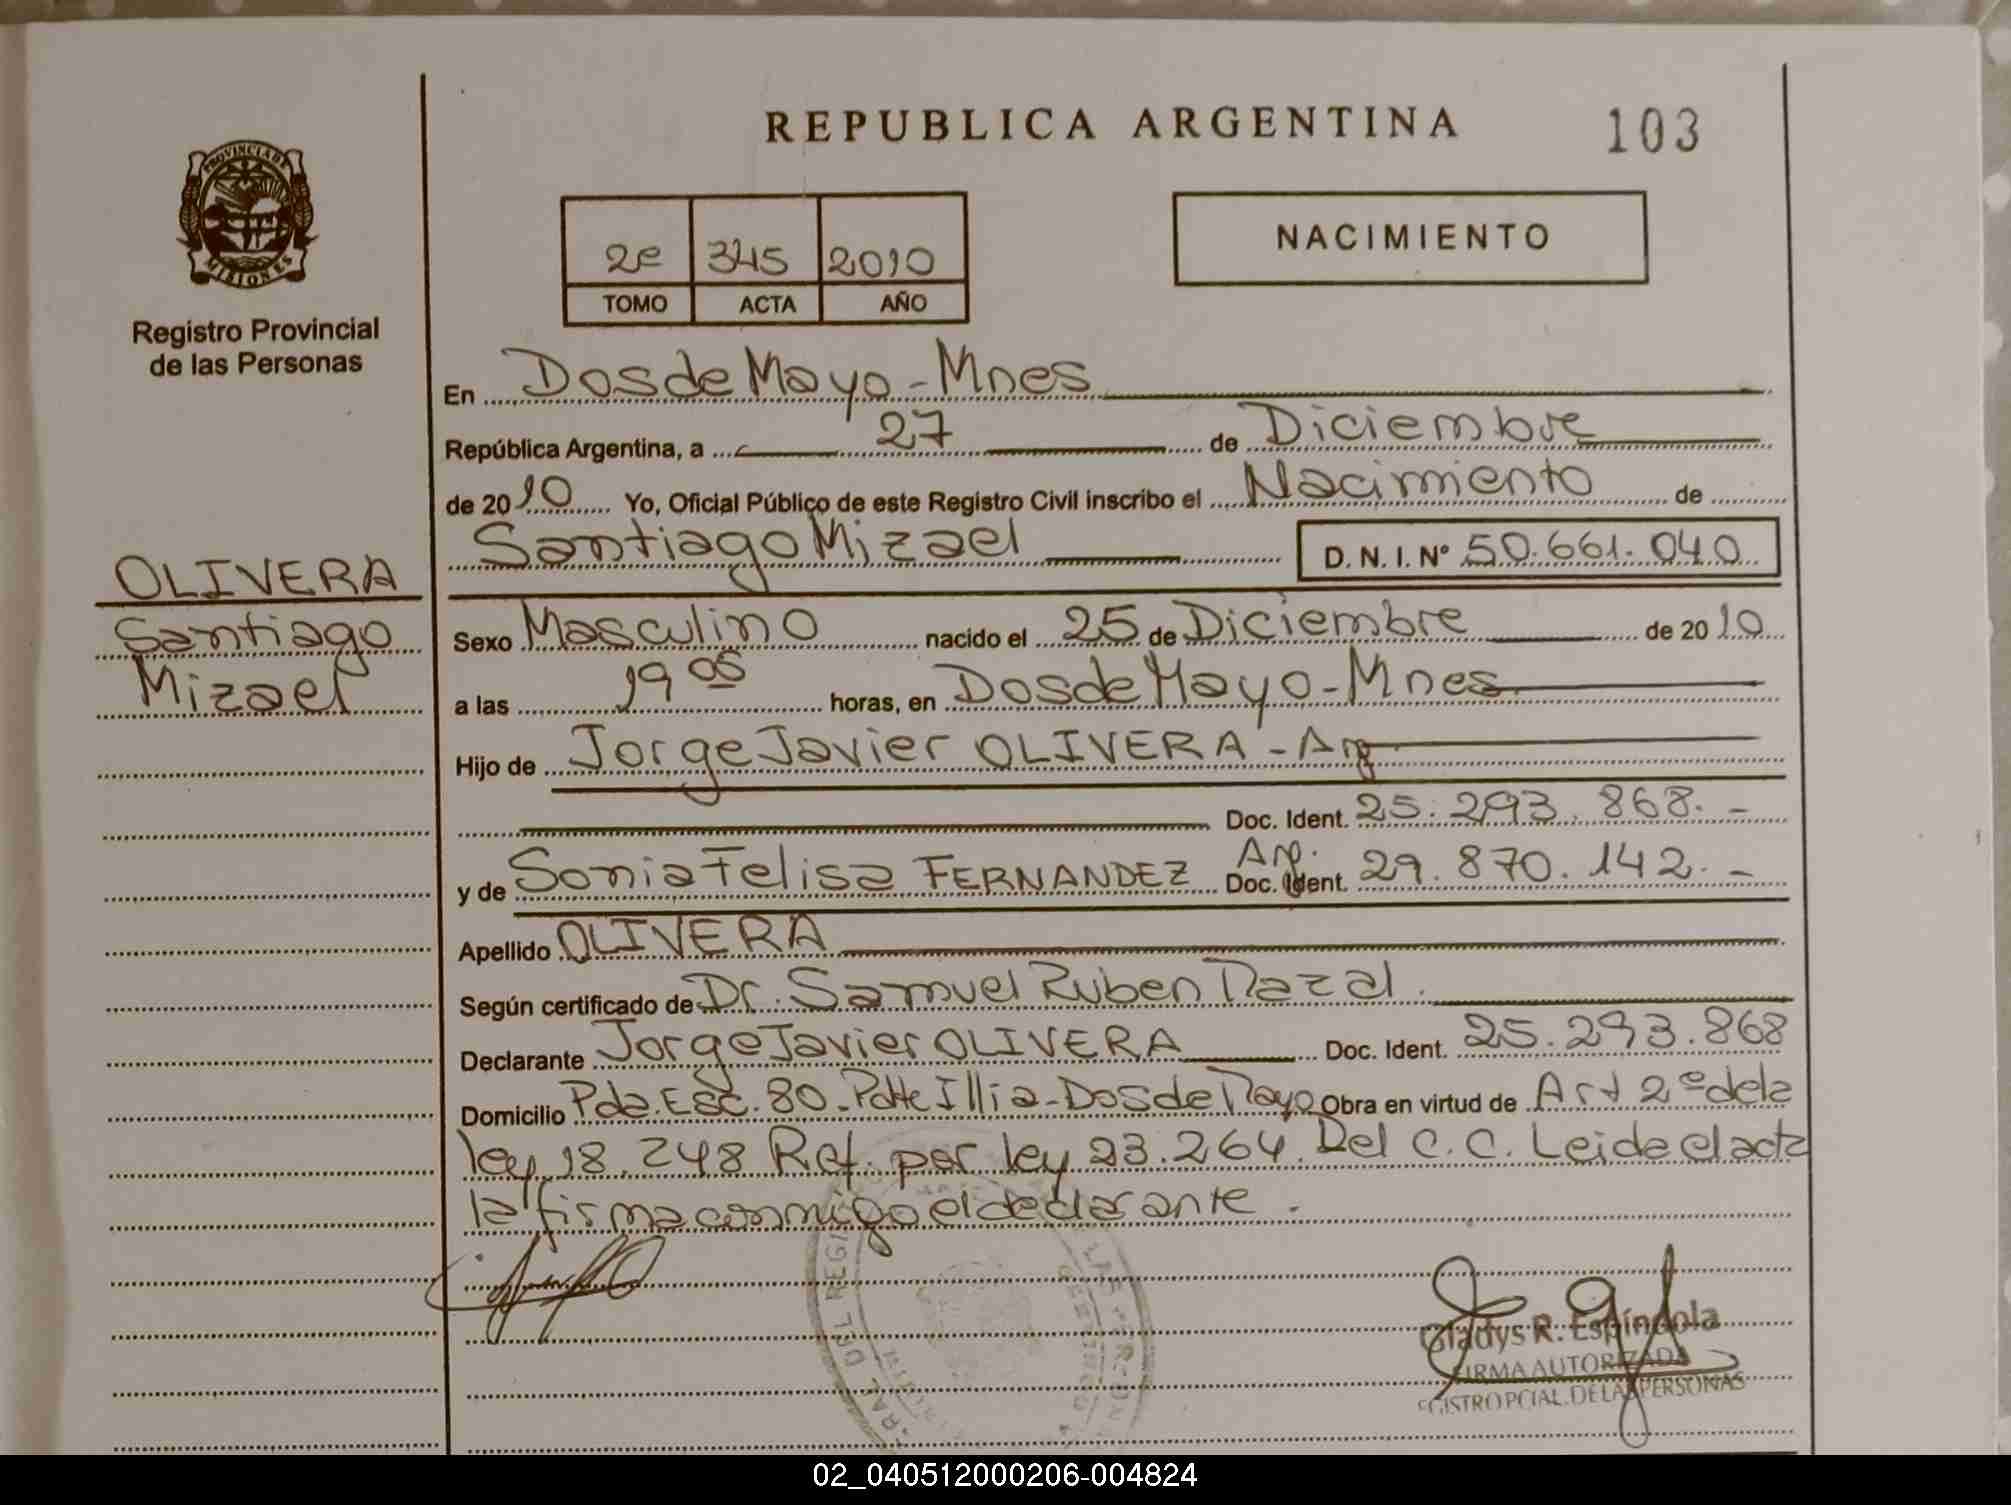 REPUBLICA ARGENTINA
103
PROVINCIA DE
MISIONES
Registro Provincial
de las Personas
2e 345 2010
TOMO ACTA AÑO
NACIMIENTO
En Dos de Mayo - Mnes
República Argentina, a 27 de Diciembre
de 2010 Yo, Oficial Público de este Registro Civil inscribo el Nacimiento de
Santiago Mizael D. N. I. Nº 50.661.040
OLIVERA
Santiago
Mizael
Sexo Masculino nacido el 25 de Diciembre de 2010
a las 19 05 horas, en Dos de Mayo - Mnes.
Hijo de Jorge Javier OLIVERA - Arg.
Doc. Ident. 25.293.868. -
y de Sonia Felisa FERNANDEZ Arg. Doc. Ident. 29.870.142. -
Apellido OLIVERA
Según certificado de Dr. Samuel Ruben
Declarante Jorge Javier OLIVERA Doc. Ident. 25.293.868
Domicilio Pda. Esc. 80 - Pdte Illia - Dos de Mayo Obra en virtud de Art 2º de la
ley 18.248 Ref. por ley 23.264. Del C. C. Leida el acta
la firma conmigo el declarante.
Gladys R. Espíndola
FIRMA AUTORIZADA
EGISTRO PCIAL. DE LAS PERSONAS
02_040512000206-004824